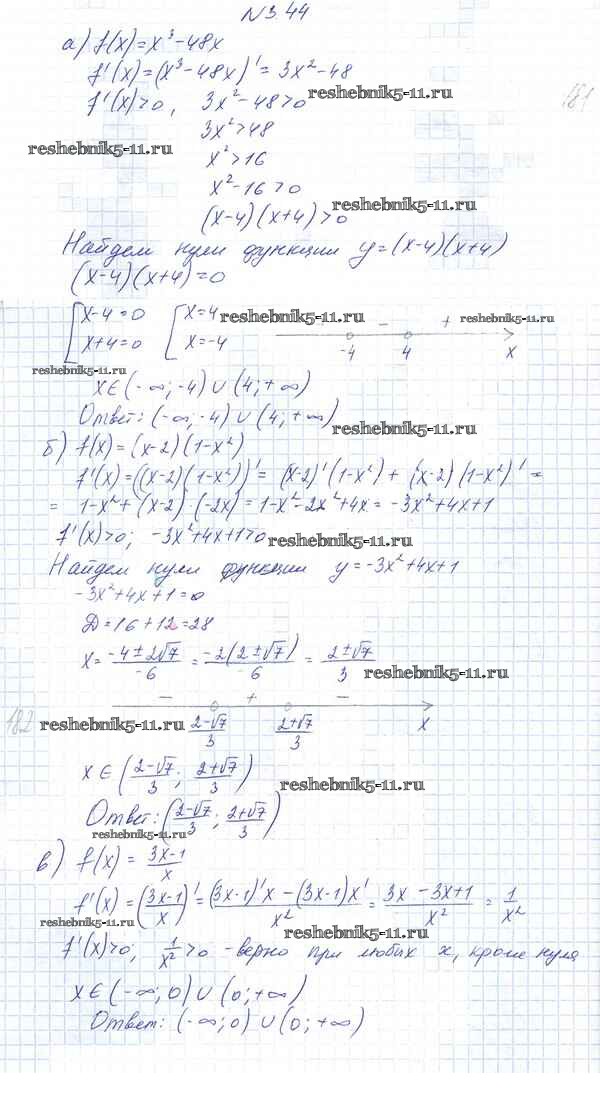 N 3.44
а) f(x)=x³-48x
f'(x)=(x³-48x)'=3x²-48
f'(x)>0, 3x²-48>0 reshebnik5-11.ru 181
3x²>48
reshebnik5-11.ru x²>16
x²-16>0
(x-4)(x+4)>0 reshebnik5-11.ru
Найдем нули функции y=(x-4)(x+4)
(x-4)(x+4)=0
[x-4=0 [x=4 reshebnik5-11.ru - + reshebnik5-11.ru
[x+4=0 [x=-4 -4 4 x
reshebnik5-11.ru
x∈(-∞;-4)∪(4;+∞)
Ответ: (-∞;-4)∪(4;+∞) reshebnik5-11.ru
б) f(x)=(x-2)(1-x²)
f'(x)=((x-2)(1-x²))'=(x-2)'(1-x²)+(x-2)(1-x²)'=
=1-x²+(x-2)·(-2x)=1-x²-2x²+4x=-3x²+4x+1
f'(x)>0; -3x²+4x+1>0 reshebnik5-11.ru
Найдем нули функции y=-3x²+4x+1
-3x²+4x+1=0
Д=16+12=28
x=(-4±2√7)/(-6)=(-2(2±√7))/(-6)=(2±√7)/3 reshebnik5-11.ru
- + -
182 reshebnik5-11.ru (2-√7)/3 (2+√7)/3 x
x∈((2-√7)/3; (2+√7)/3) reshebnik5-11.ru
Ответ: ((2-√7)/3; (2+√7)/3)
reshebnik5-11.ru
в) f(x)=(3x-1)/x
f'(x)=((3x-1)/x)'=((3x-1)'x-(3x-1)x')/x²=(3x-3x+1)/x²=1/x²
reshebnik5-11.ru reshebnik5-11.ru
f'(x)>0; 1/x²>0 -верно при любых x, кроме нуля
x∈(-∞;0)∪(0;+∞)
Ответ: (-∞;0)∪(0;+∞)